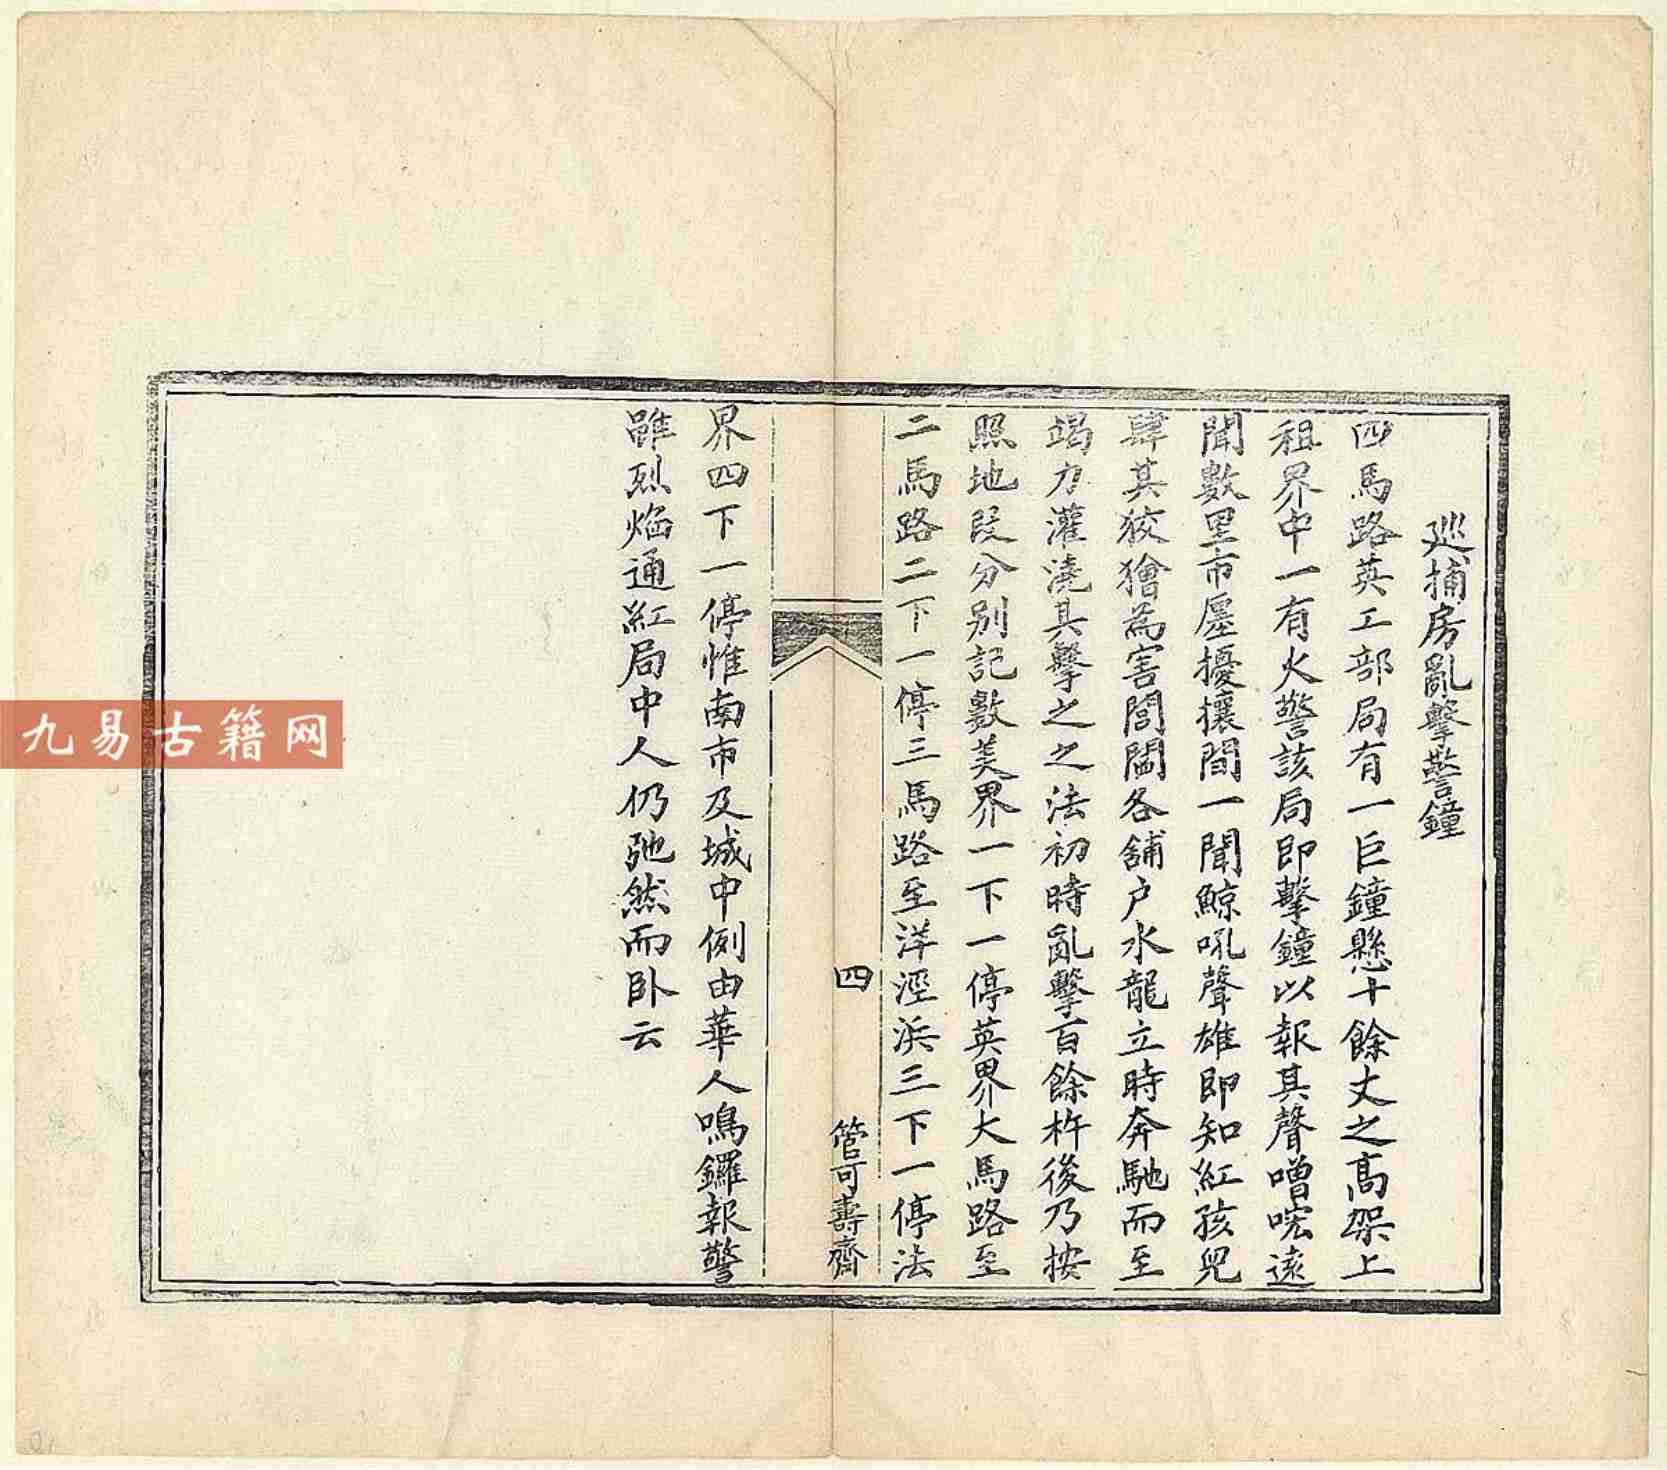 巡捕房亂擊警鐘
四馬路英工部局有一巨鐘懸十餘丈之高架上
租界中一有火警該局即擊鐘以報其聲噌吰遠
聞數里市廛擾攘間一聞鯨吼聲雄即知紅孩兒
肆其狡獪為害閭閻各舖户水龍立時奔馳而至
竭力灌澆其擊之之法初時亂擊百餘杵後乃按
照地段分别記數美界一下一停英界大馬路至
二馬路二下一停三馬路至洋涇浜三下一停法
四
管可壽齋
界四下一停惟南市及城中例由華人鳴鑼報警
雖烈焰通紅局中人仍弛然而卧云
九易古籍网